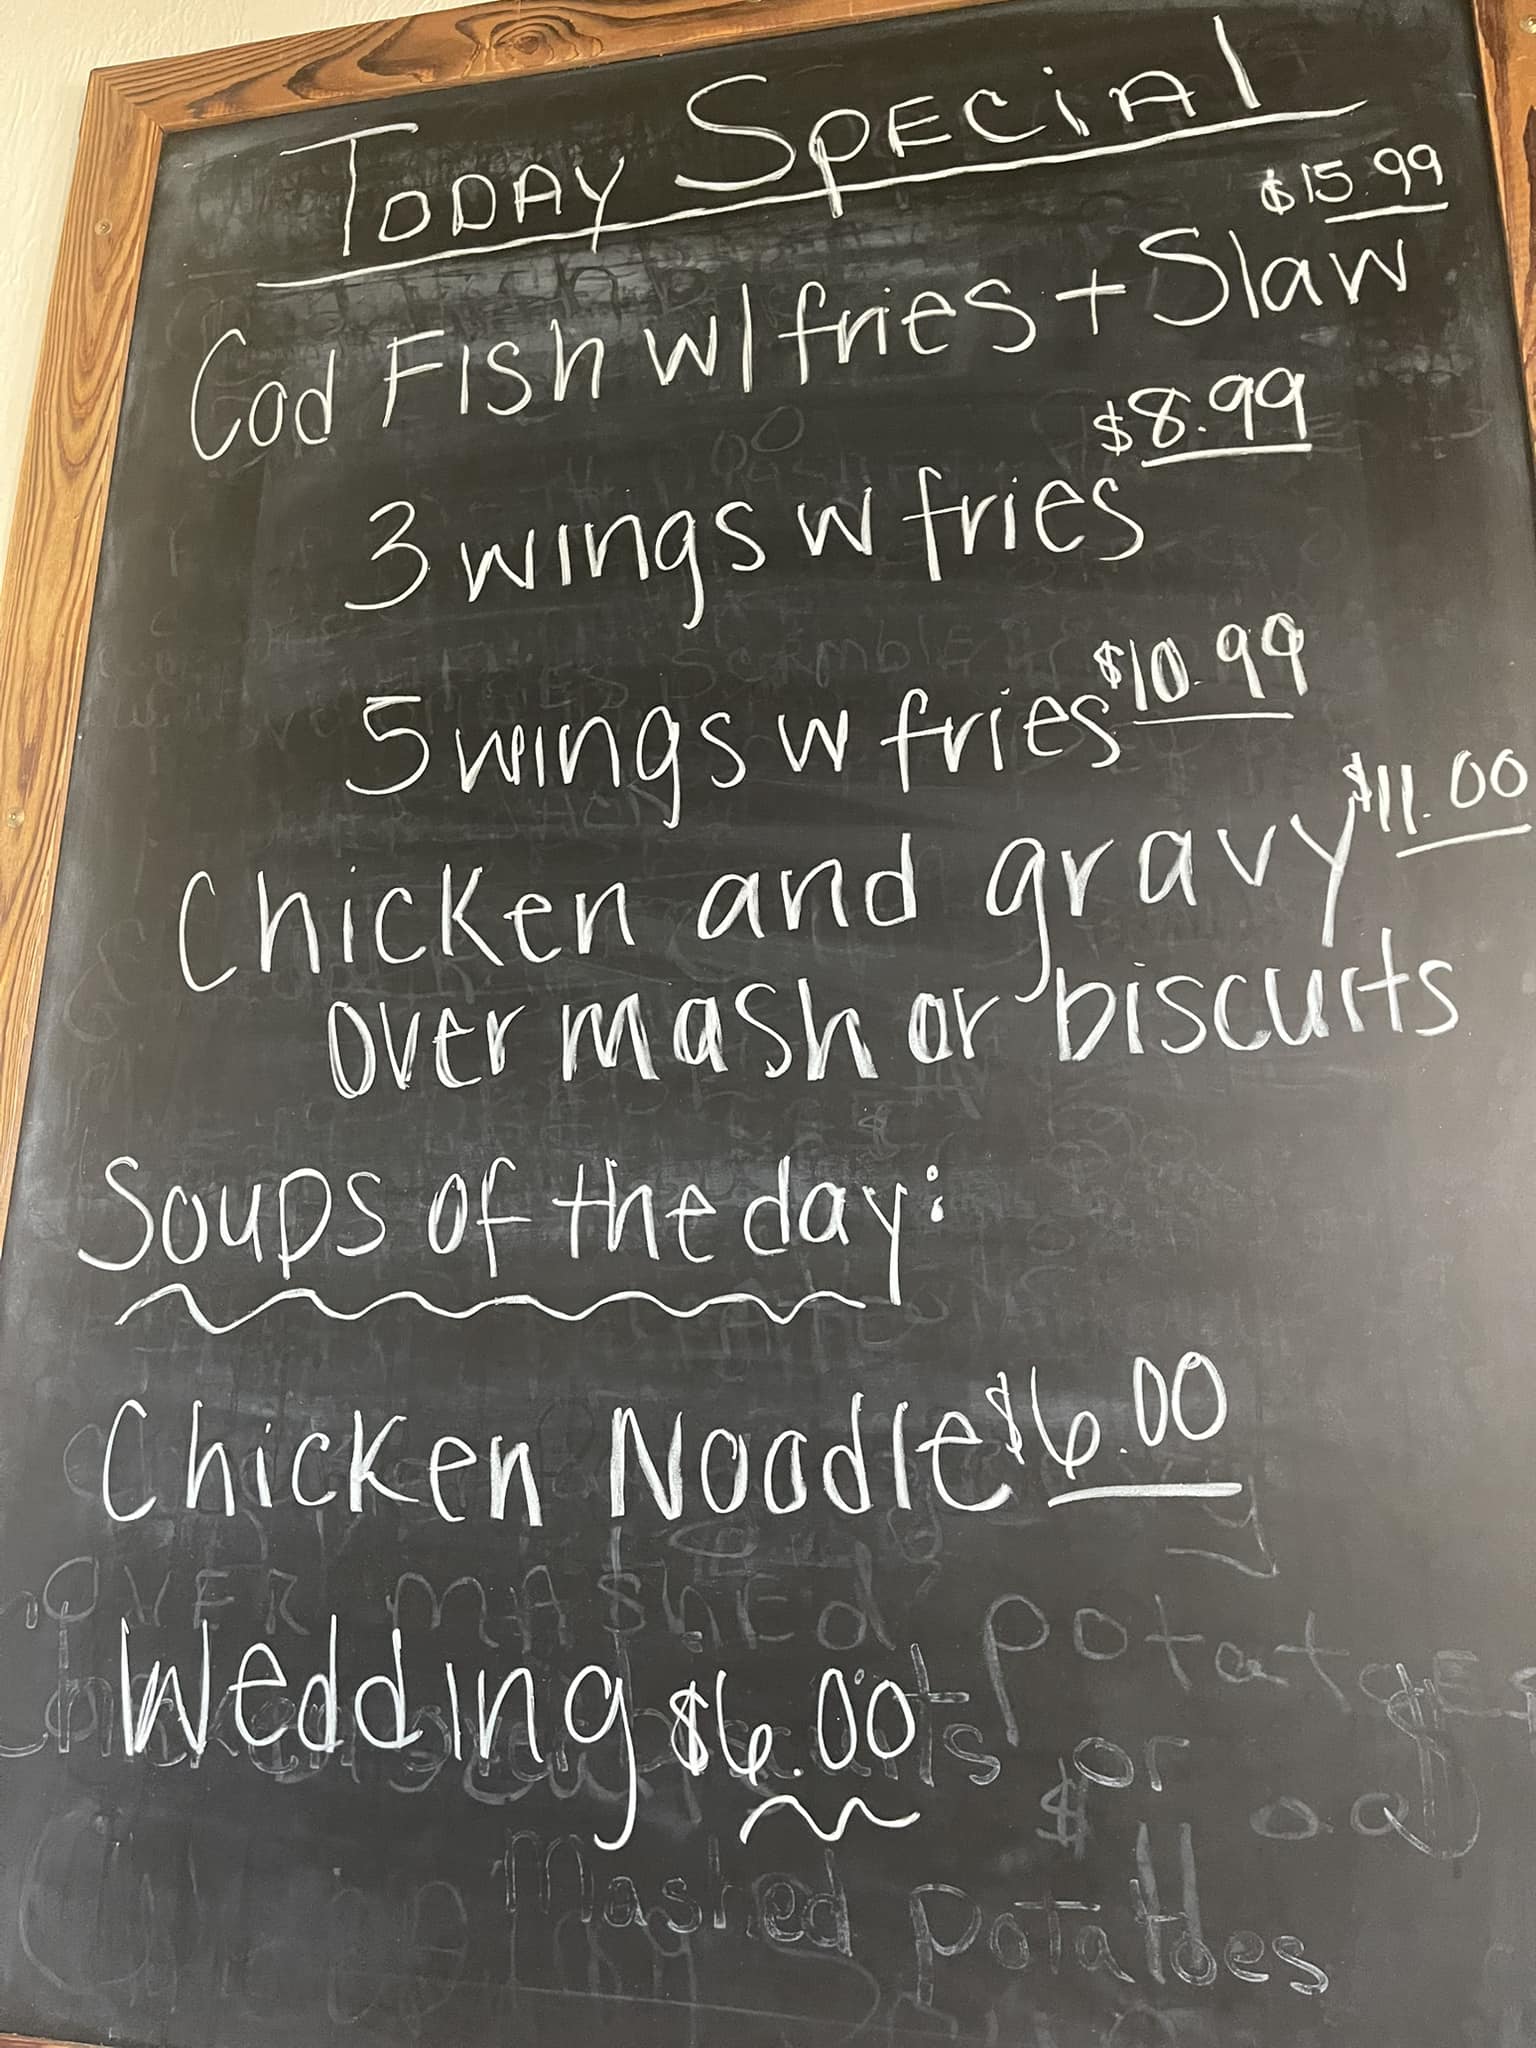 TODAY SPECiAl
$15.99
Cod FISh w/ fries + Slaw
$8.99
3 wings w fries
5 wings w fries $10.99
Chicken and gravy $11.00
over mash or biscuits
Soups of the day:
Chicken Noodle $6.00
OVER MASHEd POtatoES
Wedding $6.00
or
Mashed Potatoes